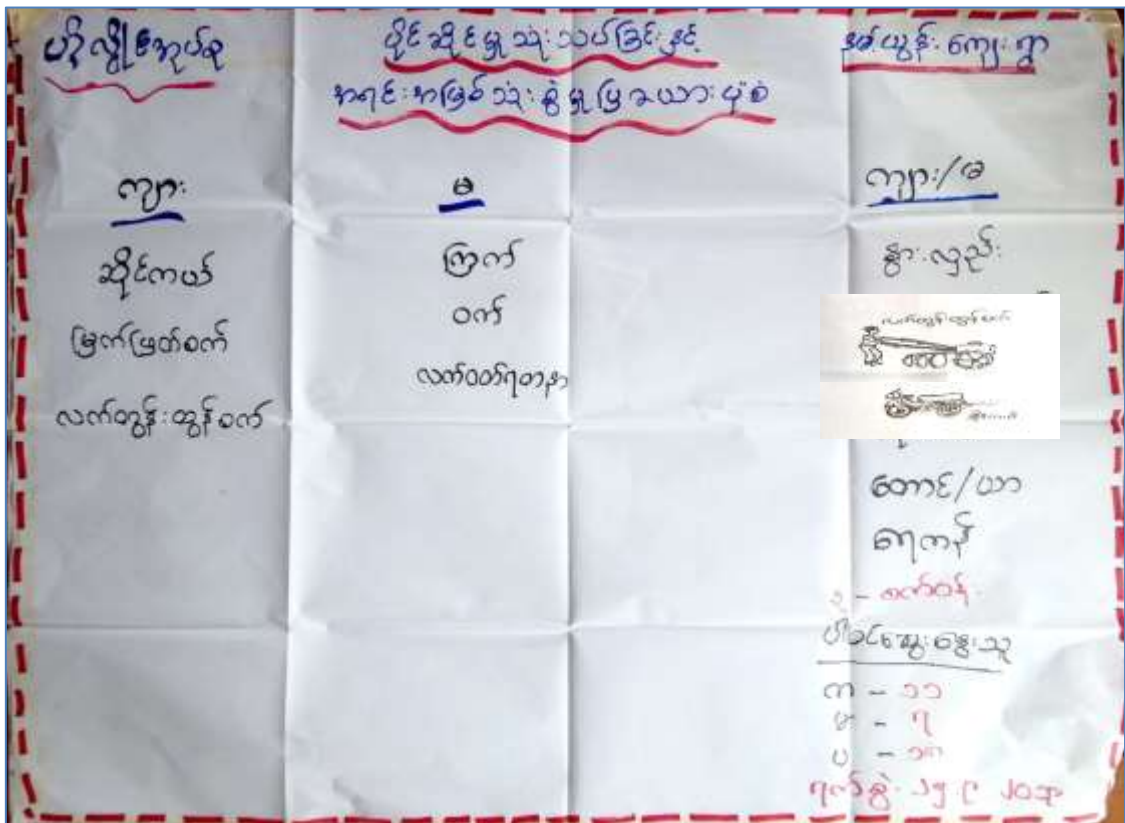 ပိုင်ဆိုင်မှုသုံးသပ်ခြင်းနှင့်
အရင်းအမြစ်သုံးစွဲမှုပြဇယားပုံစံ
နမ့်ယွန်းကျေးရွာ
ကျား
ဆိုင်ကယ်
မြက်ဖြတ်စက်
လက်တွန်းထွန်စက်
မ
ကြက်
ဝက်
လက်ဝတ်ရတနာ
ကျား/မ
နွားလှည်း
လက်တွန်းထွန်စက်
တောင်/ယာ
ရေကန်
ပါဝင်ဆွေးနွေးသူ
က - ၁၁
မ - ၇
ပ - ၁၈
ရက်စွဲ